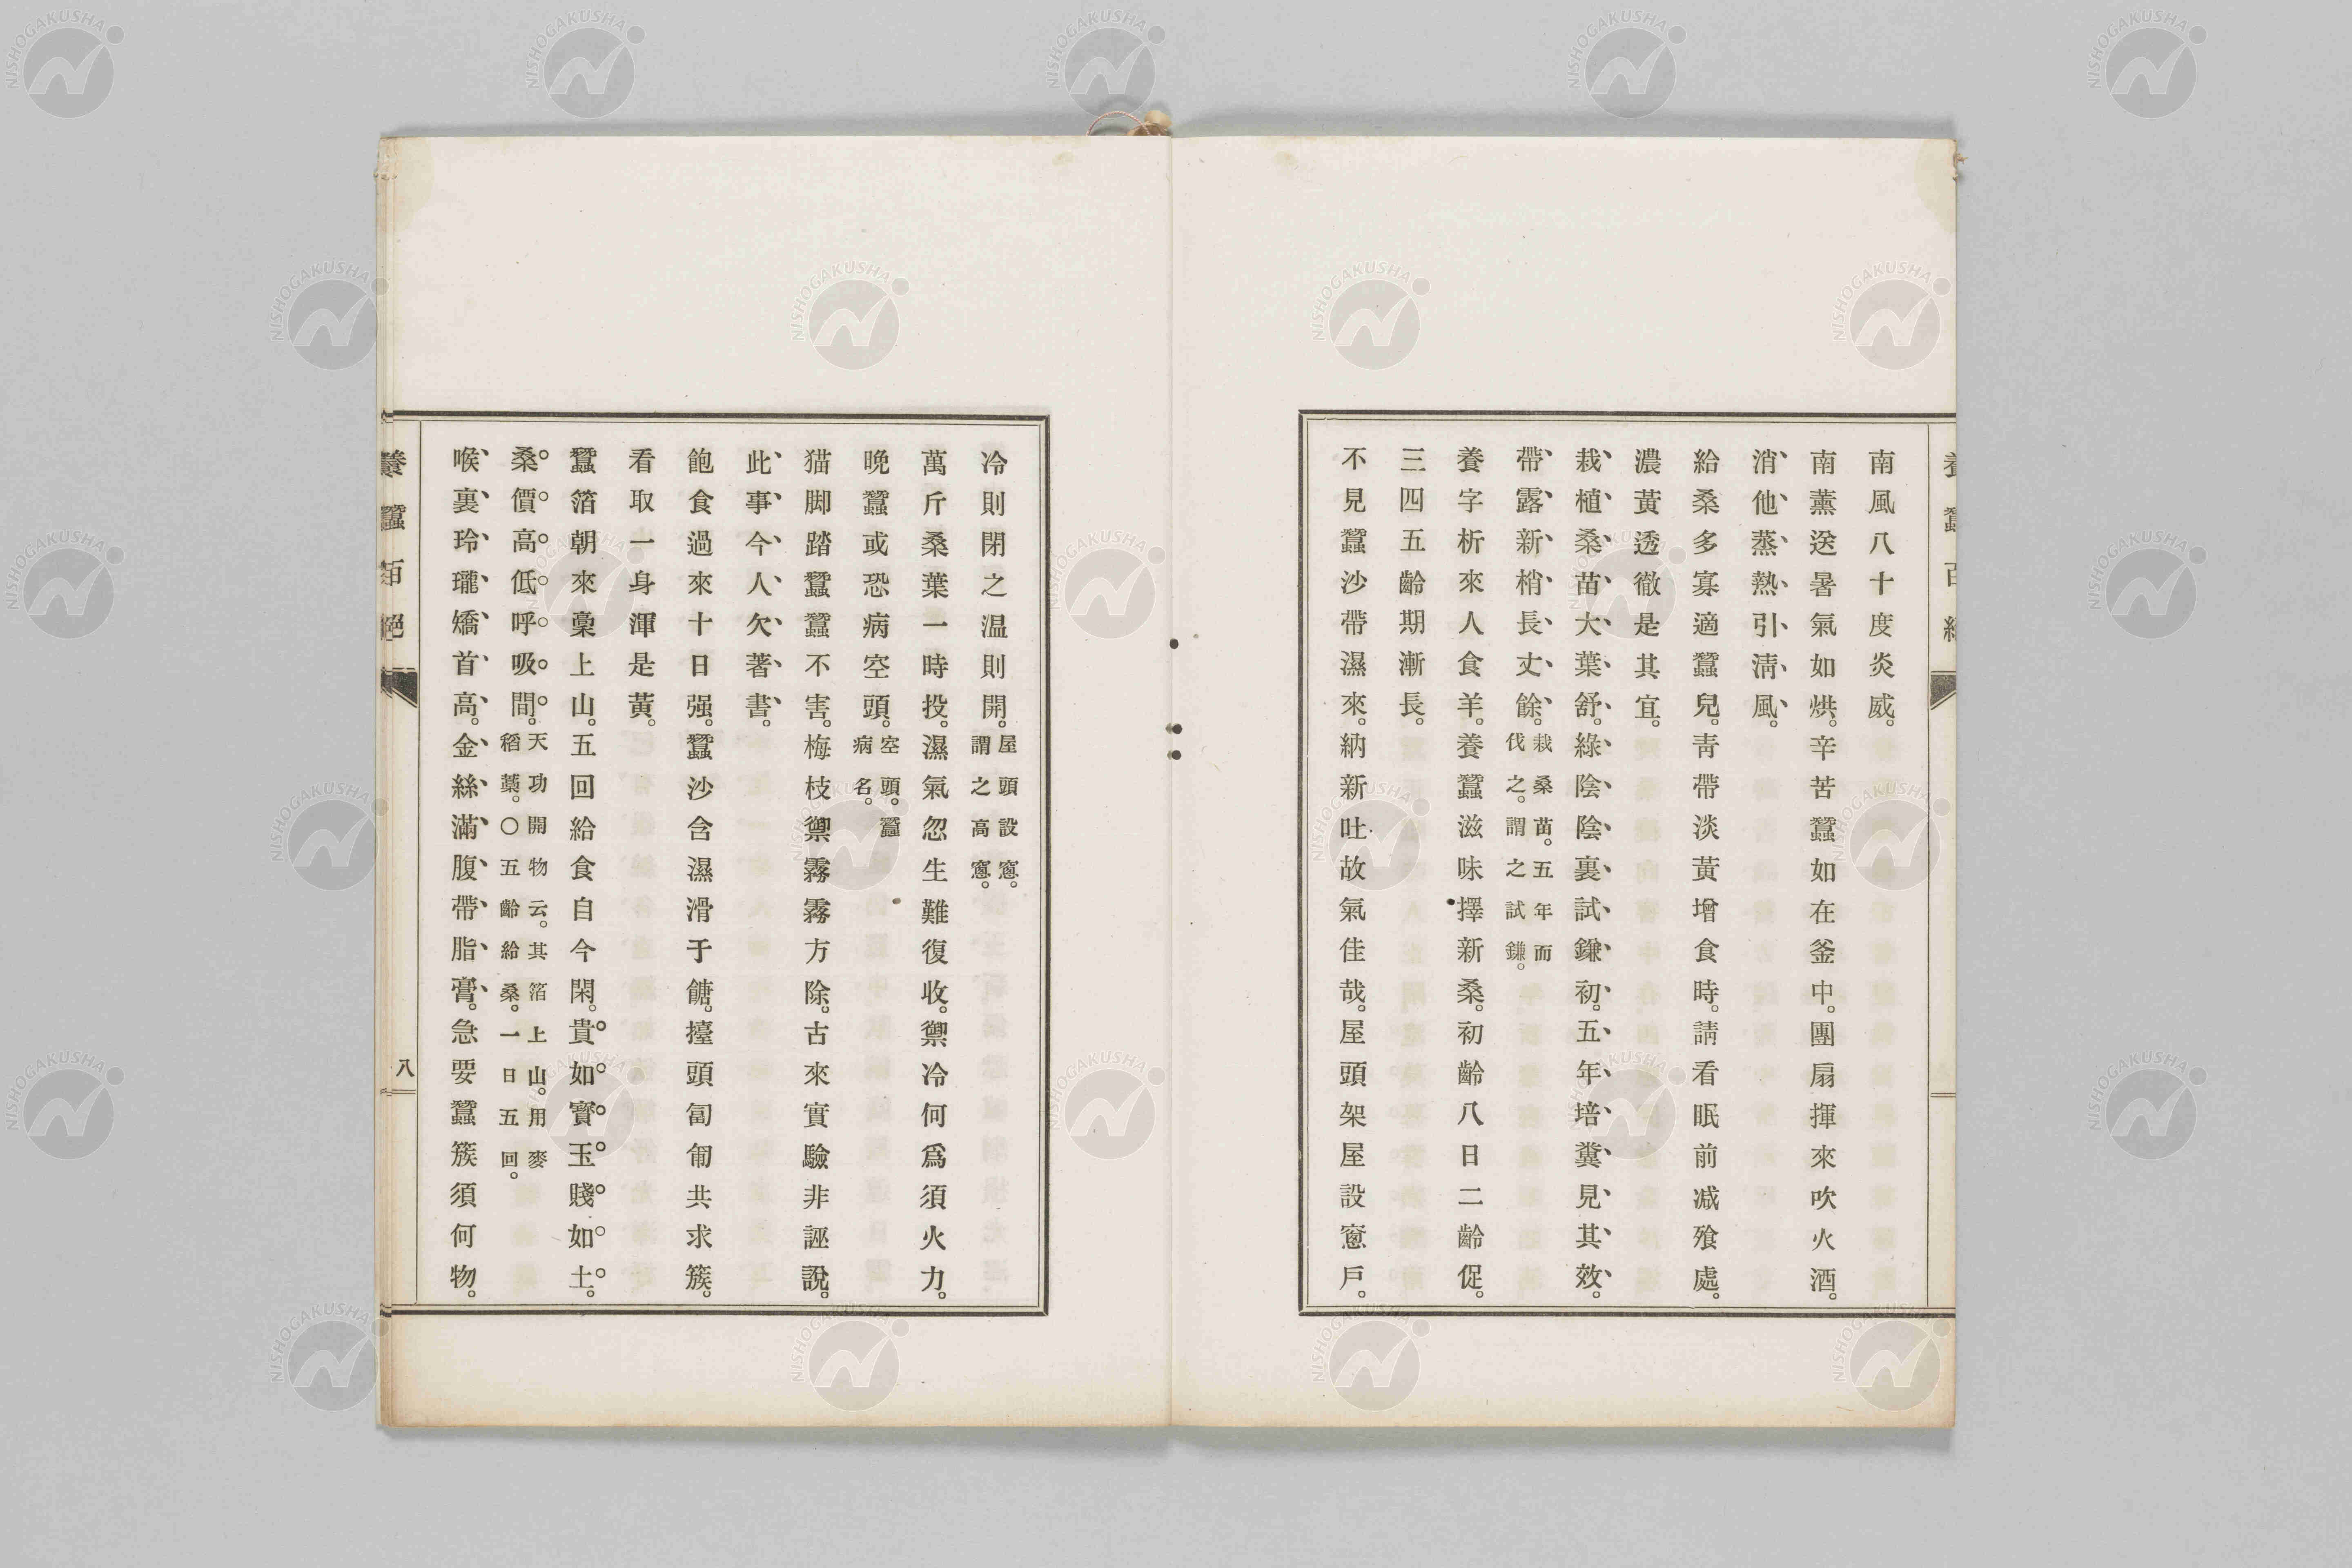 南風八十度炎威。
南薰送暑氣如烘。辛苦蠶如在釜中。團扇揮來吹火酒。
消他蒸熱引淸風。
給桑多寡適蠶兒。靑帶淡黃增食時。請看眠前減飱處。
濃黃透徹是其宜。
栽植桑苗大葉舒。綠陰陰裏試鎌初。五年培糞見其效。
帶露新梢長丈餘。栽桑苗。五年而
伐之。謂之試鎌。
養字析來人食羊。養蠶滋味擇新桑。初齡八日二齡促。
三四五齡期漸長。
不見蠶沙帶濕來。納新吐故氣佳哉。屋頭架屋設窻戶。
養蠶百絕
冷則閉之温則開。屋頭設窻。
謂之高窻。
萬斤桑葉一時投。濕氣忽生難復收。禦冷何爲須火力。
晩蠶或恐病空頭。空頭。蠶
病名。
猫脚踏蠶蠶不害。梅枝禦霧霧方除。古來實驗非誣說。
此事今人欠著書。
飽食過來十日强。蠶沙含濕滑于餹。擡頭匐匍共求簇。
看取一身渾是黃。
蠶箔朝來稾上山。五回給食自今閑。貴如寳玉賤如土。
桑價高低呼吸間。天功開物云。其箔上山。用麥
稻藁。〇五齡給桑。一日五回。
喉裏玲瓏矯首高。金絲滿腹帶脂膏。急要蠶簇須何物。
養蠶百絕
八
NISHOGAKUSHA